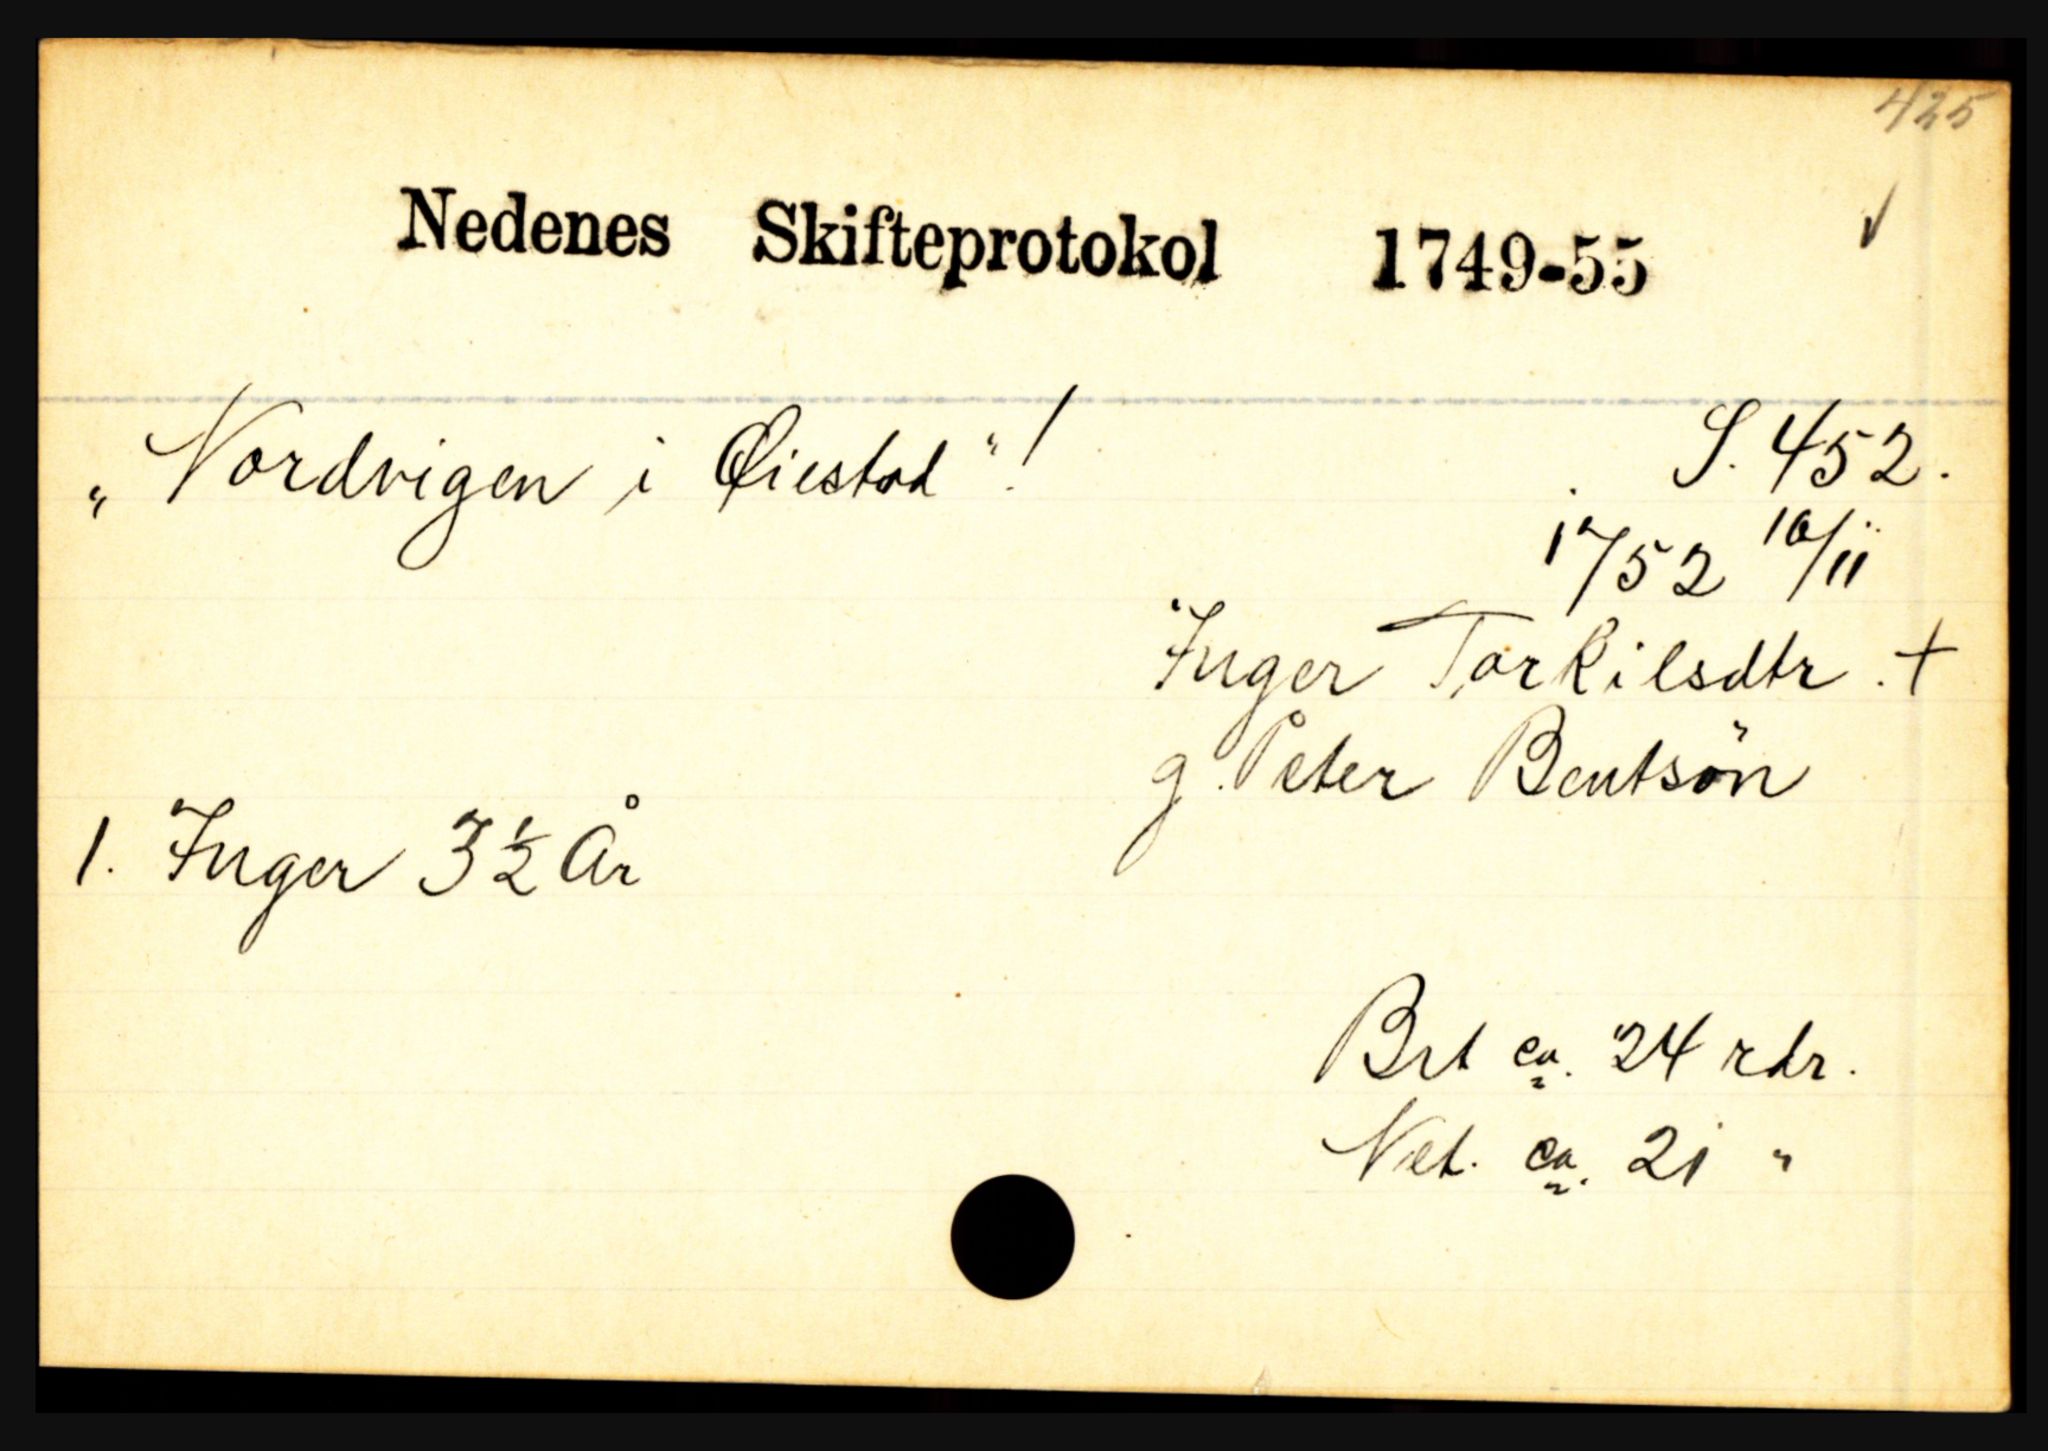 425
Nedenes Skifteprotokol 1749-55
„Nordvigen i Øiestad“!
S. 452.
1752 10/11
Inger Torkilsdtr. +
g. Peter Bentsön
1. Inger 3 ½ År
Brt ca. 24 rdr.
Net. ca. 21 "